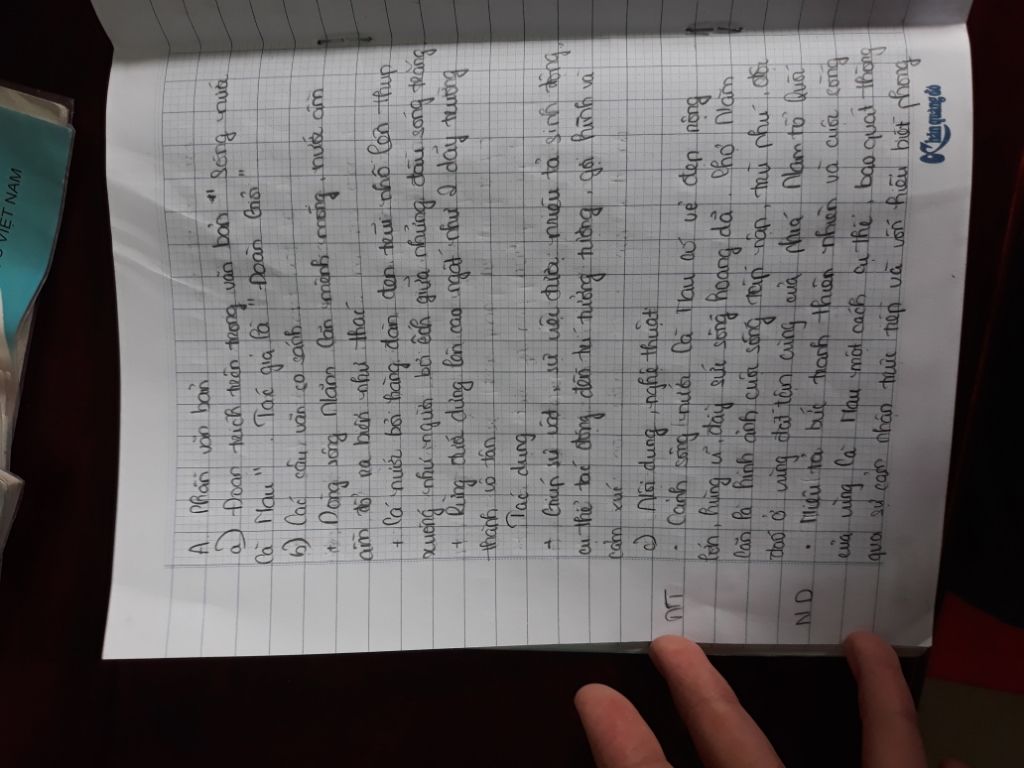 A Phần văn bản
a) Đoạn trích trên trong văn bản " Sông nước
Cà Mau". Tác giả là "Đoàn Giỏi"
b) Các câu văn so sánh
+ Dòng sông Năm Căn mênh mông, nước ầm
ầm đổ ra biển như thác.
+ Cá nước bơi hàng đàn đen trũi nhô lên thụp
xuống như người bơi ếch giữa những đầu sóng trắng
+ Rừng đước dựng lên cao ngất như 2 dãy trường
thành vô tận.
Tác dụng
+ Giúp sự vật, sự việc được miêu tả sinh động
cụ thể tác động đến trí tưởng tượng, gợi hình và
cảm xúc
c) Nội dung, nghệ thuật
• Cảnh sông nước Cà Mau có vẻ đẹp rộng
lớn, hùng vĩ, đầy sức sống hoang dã. Chợ Năm
Căn là hình ảnh cuộc sống tấp nập, trù phú, độc
đáo ở vùng đất tận cùng của phía Nam tổ quốc
ND
• Miêu tả bức tranh thiên nhiên và cuộc sống
của vùng Cà Mau một cách cụ thể, bao quát thông
qua sự cảm nhận trực tiếp và vốn hiểu biết phong
VIỆT NAM